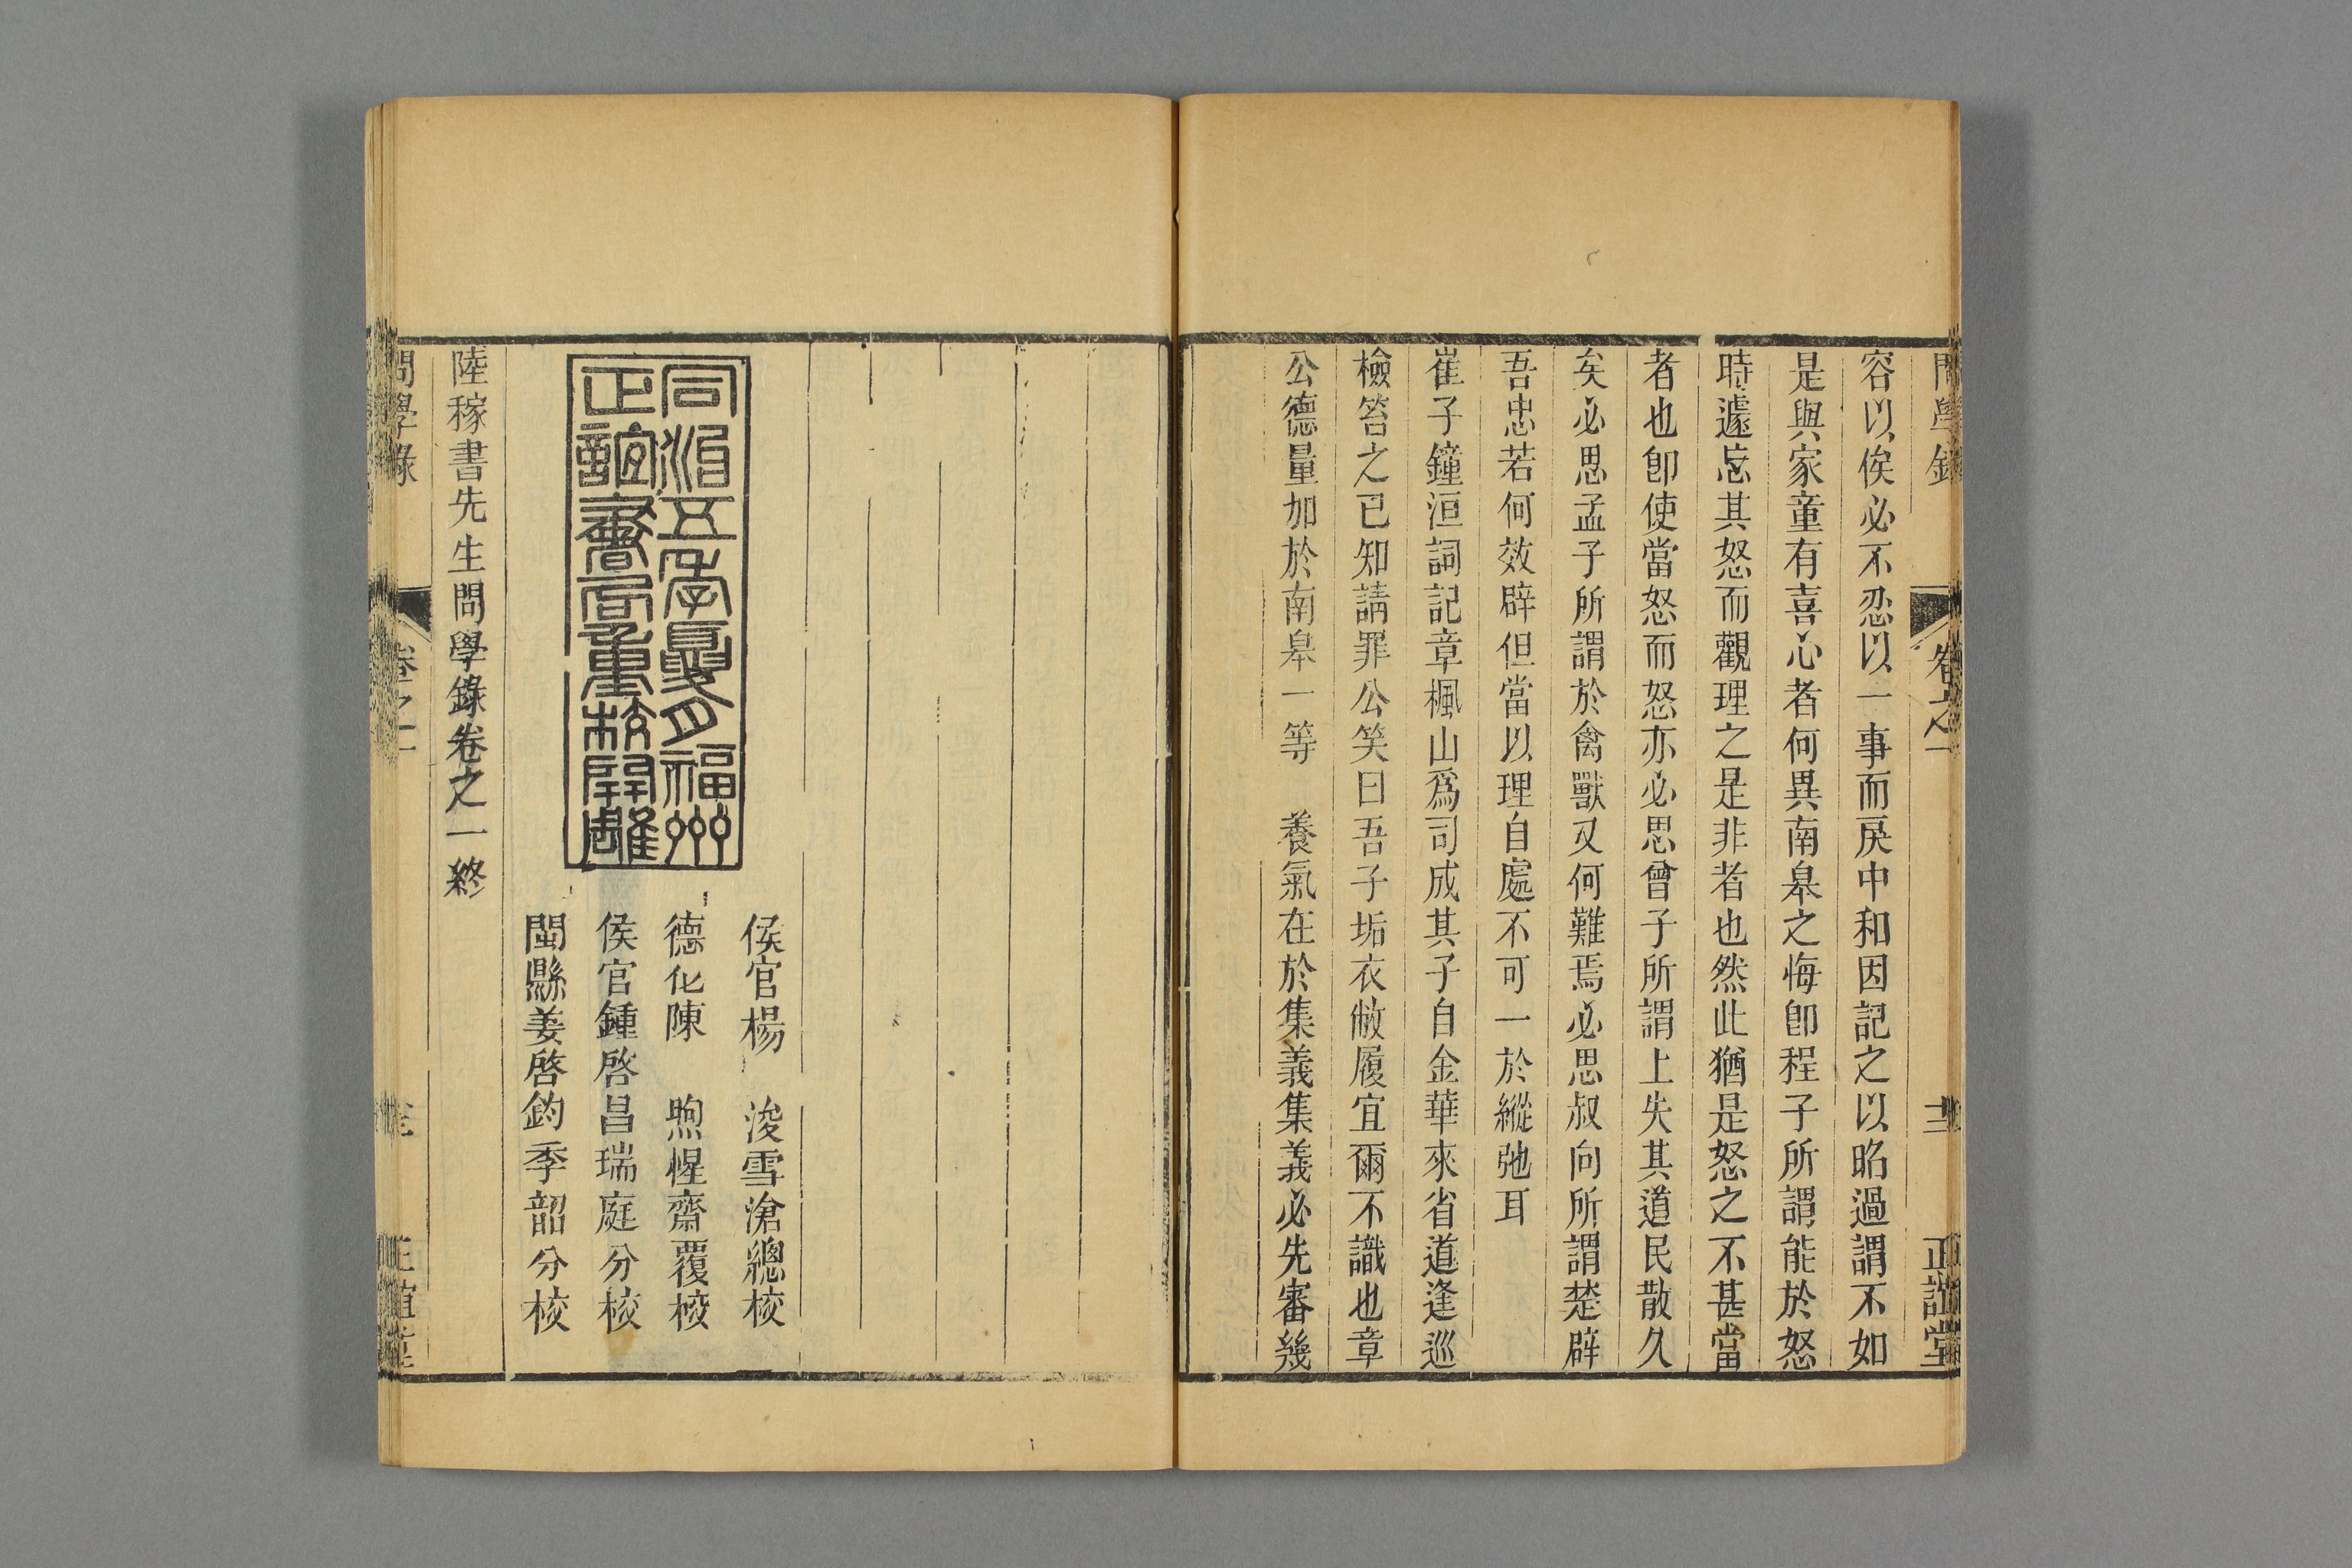 問學錄 卷之一 正誼堂
容以俟必不忍以一事而戾中和因記之以昭過謂不如
是與家童有喜心者何異南皋之悔卽程子所謂能於怒
時遽忘其怒而觀理之是非者也然此猶是怒之不甚當
者也卽使當怒而怒亦必思曾子所謂上失其道民散久
矣必思孟子所謂於禽獸又何難焉必思叔向所謂楚辟
吾忠若何效辟但當以理自處不可一於縱弛耳
崔子鐘洹詞記章楓山爲司成其子自金華來省道逢巡
檢笞之已知請罪公笑曰吾子垢衣敝履宜爾不識也章
公德量加於南皋一等　養氣在於集義集義必先審幾
侯官楊　浚雪滄總校
德化陳　煦惺齋覆校
侯官鍾啓昌瑞庭分校
閩縣姜啓鈞季韶分校
同治五年夏月福州
正誼書局重校開雕
陸稼書先生問學錄卷之一終
問學錄 卷之一 正誼堂